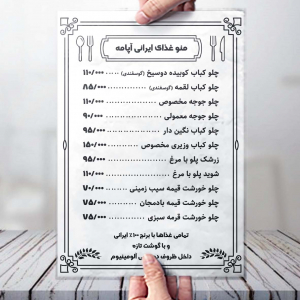 منو غذای ایرانی آپامه
چلو کباب کوبیده دوسیخ (گوسفندی) ۱۱۰/۰۰۰
چلو کباب لقمه (گوسفندی) ۸۵/۰۰۰
چلو جوجه مخصوص ۱۱۰/۰۰۰
چلو جوجه معمولی ۹۰/۰۰۰
چلو کباب نگین دار ۹۵/۰۰۰
چلو کباب وزیری مخصوص ۱۵۰/۰۰۰
زرشک پلو با مرغ ۹۵/۰۰۰
شوید پلو با مرغ ۱۱۰/۰۰۰
چلو خورشت قیمه سیب زمینی ۷۰/۰۰۰
چلو خورشت قیمه بادمجان ۷۵/۰۰۰
چلو خورشت قرمه سبزی ۷۵/۰۰۰
تمامی غذاها با برنج ۱۰۰٪ ایرانی
و با گوشت تازه
داخل ظروف آلومینیوم